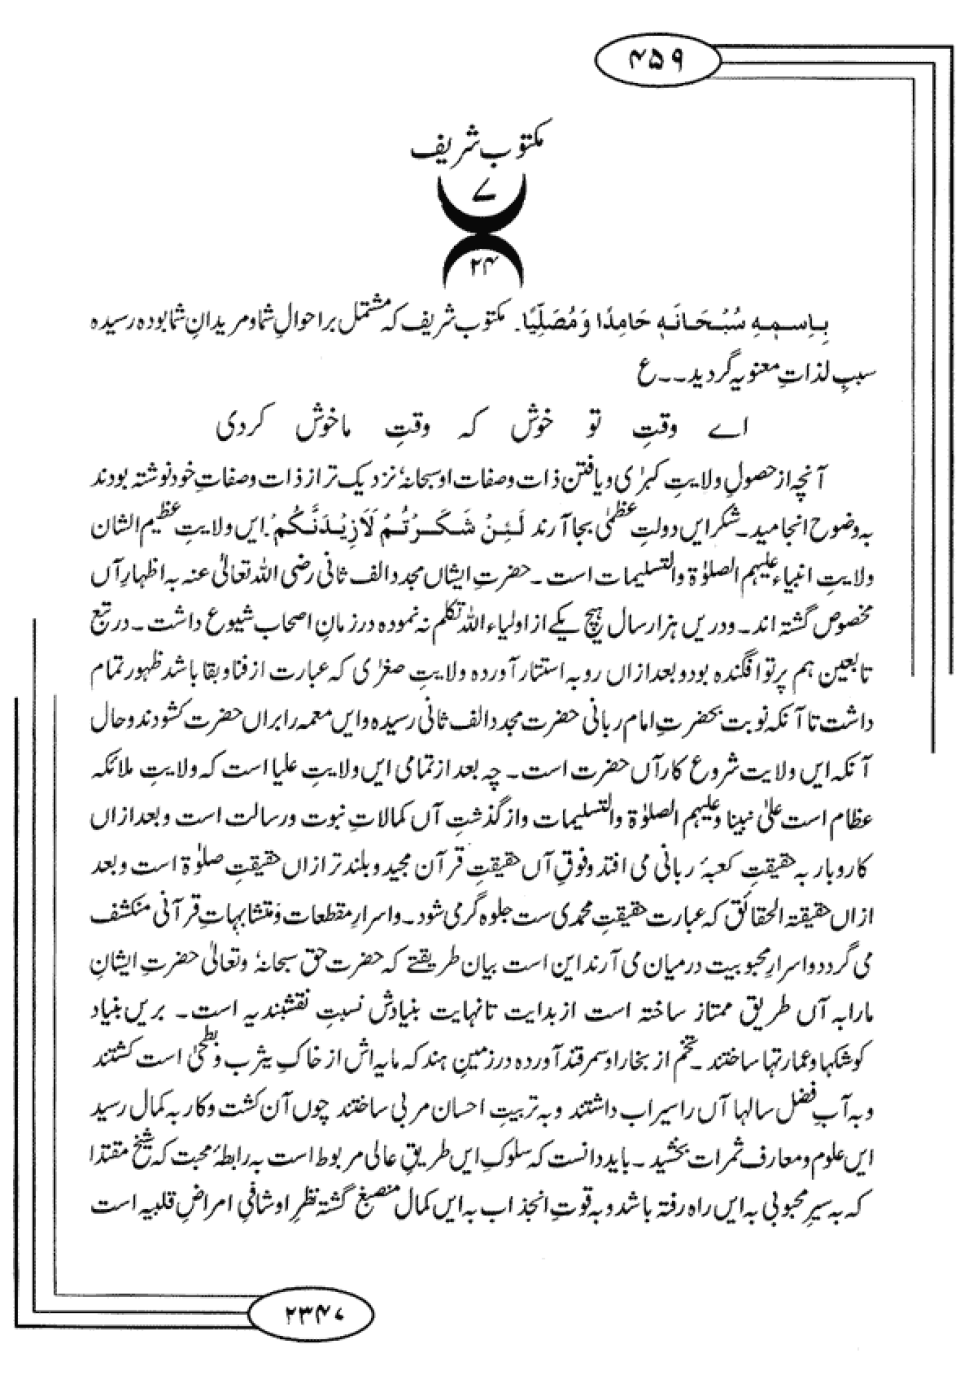 ۴۵۹
مکتوب شریف
۷
۲۴
بِاِسمِہٖ سُبْحَانَہٗ حَامِدًا وَمُصَلِّیًا۔ مکتوب شریف کہ مشتمل بر احوالِ شما و مریدانِ شما بودہ رسیدہ
سببِ لذات معنویہ گردید۔۔ع
اے وقتِ تو خوش کہ وقتِ ما خوش کردی
آنچہ از حصولِ ولایتِ کبرٰی و یافتن ذات و صفات او سبحانہٗ نزدیک تر از ذات و صفاتِ خود نوشتہ بودند
بہ وضوح انجامید۔ شکر ایں دولتِ عظمیٰ بجا آرند لَئِنْ شَکَرْتُمْ لَاَزِیْدَنَّکُمْ۔ ایں ولایتِ عظیم الشان
ولایتِ انبیاء علیہم الصلوٰۃ والتسلیمات است۔ حضرتِ ایشاں مجدد الف ثانی رضی اللہ تعالیٰ عنہ بہ اظہارِ آں
مخصوص گشتہ اند۔ و دریں ہزار سال ہیچ یکے از اولیاء اللہ تکلم نہ نمودہ در زمانِ اصحاب شیوع داشت۔ در تبع
تابعین ہم پرتو افگندہ بود و بعد ازاں رو بہ استتار آوردہ ولایتِ صغرٰی کہ عبارت از فنا و بقا باشد ظہور تمام
داشت تا آنکہ نوبت بحضرتِ امام ربانی حضرت مجدد الف ثانی رسیدہ و ایں معمہ را براں حضرت کشودند و حال
آنکہ ایں ولایت شروع کار آں حضرت است۔ چہ بعد از تمامی ایں ولایتِ علیا است کہ ولایتِ ملائکہ
عظام است علیٰ نبینا و علیہم الصلوٰۃ والتسلیمات و از گذشتِ آں کمالاتِ نبوت و رسالت است و بعد ازاں
کاروبار بہ حقیقتِ کعبہٴ ربانی می افتد و فوقِ آں حقیقتِ قرآن مجید و بلند تر ازاں حقیقتِ صلوٰۃ است و بعد
ازاں حقیقۃ الحقائق کہ عبارت حقیقتِ محمدی ست جلوہ گر می شود۔ و اسرارِ مقطعات و متشابہاتِ قرآنی منکشف
می گردد و اسرارِ محبوبیت درمیان می آرند این است بیان طریقتے کہ حضرت حق سبحانہٗ وتعالیٰ حضرتِ ایشانِ
مارا بہ آں طریق ممتاز ساختہ است از بدایت تا نہایت بنیادش نسبتِ نقشبندیہ است۔ بریں بنیاد
کوشکہا و عمارتہا ساختند۔ تخم از بخارا و سمرقند آوردہ در زمینِ ہند کہ مایہ اش از خاکِ یثرب و بطحیٰ است کشتند
و بہ آبِ فضل سالہا آں را سیراب داشتند و بہ تربیتِ احسان مربی ساختند چوں آن کشت و کار بہ کمال رسید
ایں علوم و معارف ثمرات بخشید۔ باید دانست کہ سلوکِ ایں طریقِ عالی مربوط است بہ رابطہٴ محبت کہ شیخ مقتدا
کہ بہ سیرِ محبوبی بہ ایں راہ رفتہ باشد و بہ قوتِ انجذاب بہ ایں کمال منصبغ گشتہ نظرِ او شافیِ امراضِ قلبیہ است
۲۳۴۷